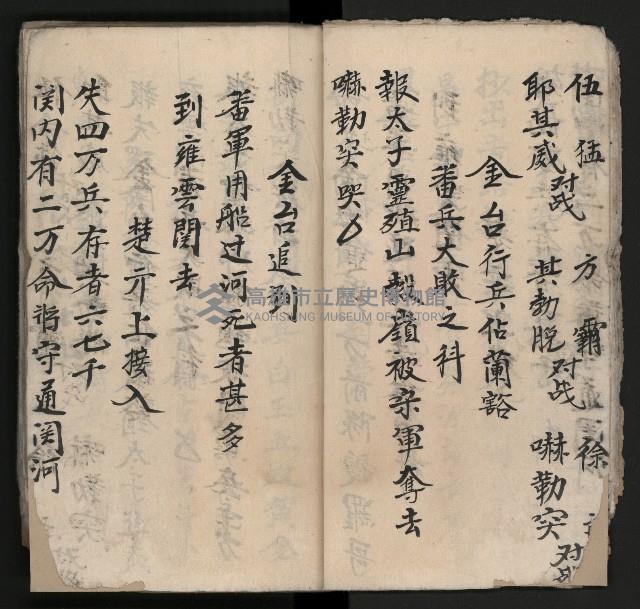 伍猛 方霸 徐
耶其威对战 其勃脱对战 嚇勤突 对战
金台行兵佔蘭谿
番兵大敗之科
報太子靈殖山 嶺被宋軍奪去
嚇勤突哭
金台追到
番軍用船过河死者甚多
到雍雲関去
楚亓上接入
失四万兵存者六七千
関内有二万命將守通関河
高雄市立歷史博物館
KAOHSIUNG MUSEUM OF HISTORY